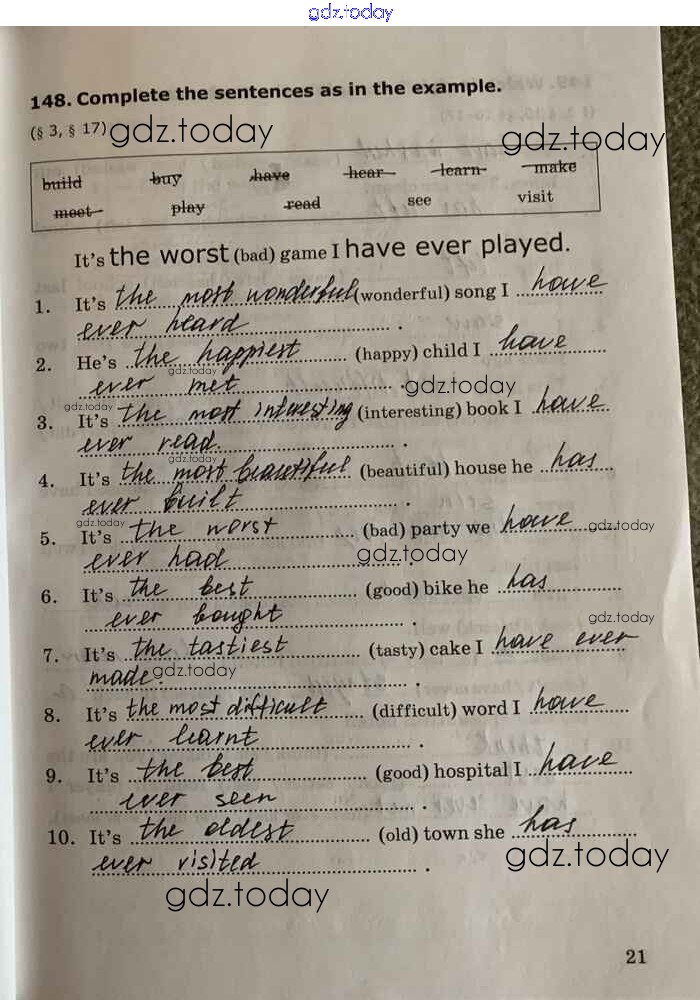 gdz.today
148. Complete the sentences as in the example.
(§ 3, § 17) gdz.today gdz.today
build buy have hear learn make
meet play read see visit
It's the worst (bad) game I have ever played.
1. It's the most wonderful (wonderful) song I have
ever heard .
2. He's the happiest (happy) child I have
gdz.today
ever met . gdz.today
gdz.today
3. It's the most interesting (interesting) book I have
ever read .
gdz.today
4. It's the most beautiful (beautiful) house he has
ever built .
gdz.today gdz.today
5. It's the worst (bad) party we have
ever had . gdz.today
6. It's the best (good) bike he has
ever bought . gdz.today
7. It's the tastiest (tasty) cake I have ever
made. gdz.today .
8. It's the most difficult (difficult) word I have
ever learnt .
9. It's the best (good) hospital I have
ever seen .
10. It's the oldest (old) town she has
ever visited . gdz.today
gdz.today
21